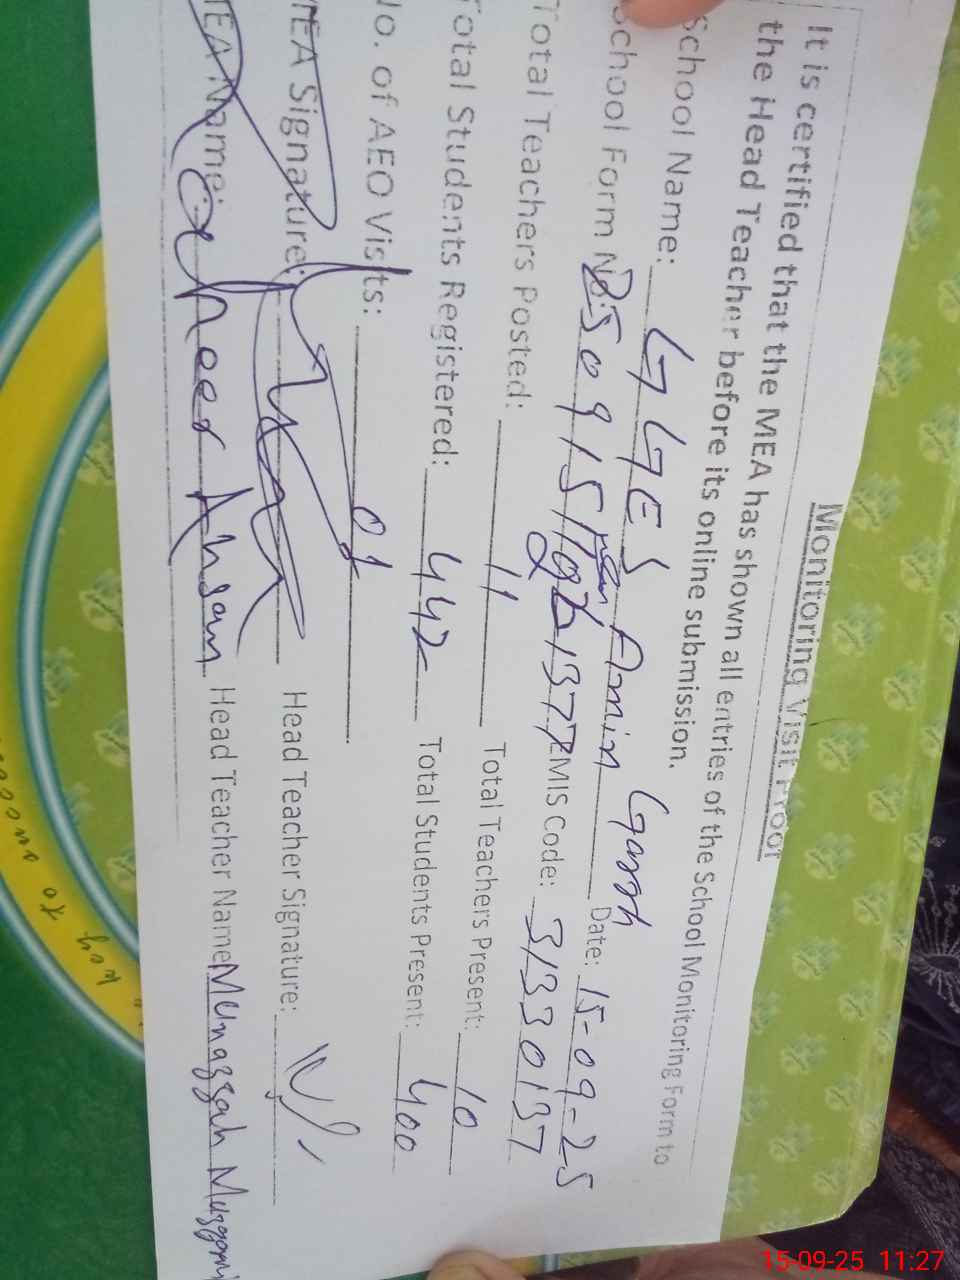 Monitoring Visit Proof
It is certified that the MEA has shown all entries of the School Monitoring Form to
the Head Teacher before its online submission.
School Name: GGES Amin Garh Date: 15-09-25
School Form No: 2509151 1377 EMIS Code: 31330137
Total Teachers Posted: 11 Total Teachers Present: 10
Total Students Registered: 442 Total Students Present: 400
No. of AEO Visits: 01
MEA Signature: Head Teacher Signature:
MEA Name: Ahsan Head Teacher Name Munazzah
key to success
15-09-25 11:27